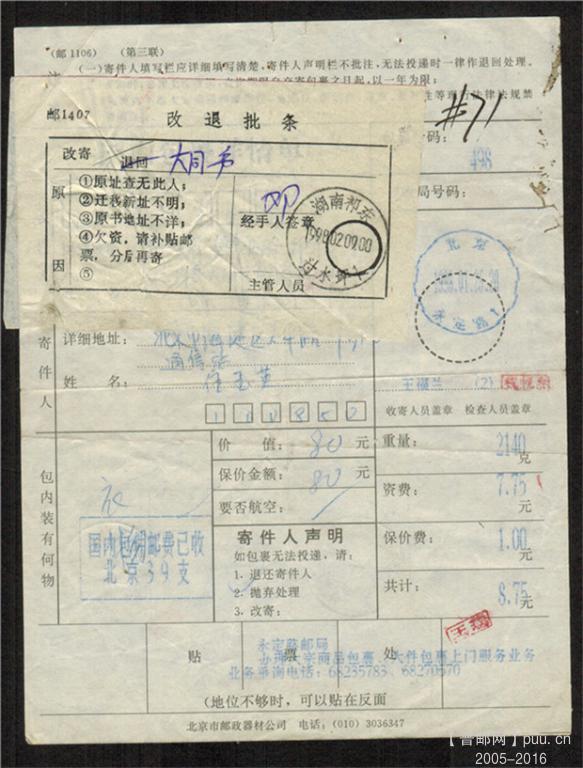 (邮1106) (第三联)
(一)寄件人填写栏应详细填写清楚，寄件人声明栏不批注，无法投递时一律作退回处理。
自交寄包裹之日起，以一年为限；
法律法规禁
#71
邮1407
改退批条
改寄
退回
大同市
原
因
①原址查无此人；
②迁移新址不明；
③原书地址不详；
④欠资，请补贴邮
票，分后再寄
⑤
经手人签章
主管人员
湖南祁东
1998.02.09.00
码：
498
局号码：
北京
永定路1
寄件人
详细地址：
通信站
姓 名：
任玉英
100850
王淑兰
(2)
收寄人员盖章 检查人员盖章
包内装有何物
衣
国内包裹邮费已收
北京39支
价 值： 80 元
保价金额： 80 元
要否航空：
重量： 2140 克
资费： 7.75 元
保价费： 1.00 元
共计： 8.75 元
寄件人声明
如包裹无法投递，请：
1. 退还寄件人
2. 抛弃处理
3. 改寄：
贴 票 处
永定路邮局
办理大宗商品包裹、大件包裹上门服务业务
业务咨询电话：68235783、68270570
(地位不够时，可以贴在反面
北京市邮政器材公司 电话：(010) 3036347
【普邮网】puu.cn
2005-2016